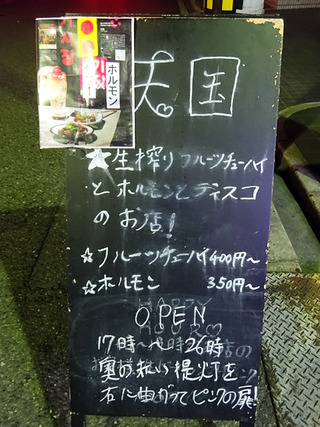 ホルモン
天国
★生搾りフルーツチューハイ
とホルモンとディスコ
のお店!
☆フルーツチューハイ400円〜
☆ホルモン 350円〜
HAPPY
HOUR♡
OPEN
17時〜26時
奥の赤い提灯を
右に曲がってピンクの扉!